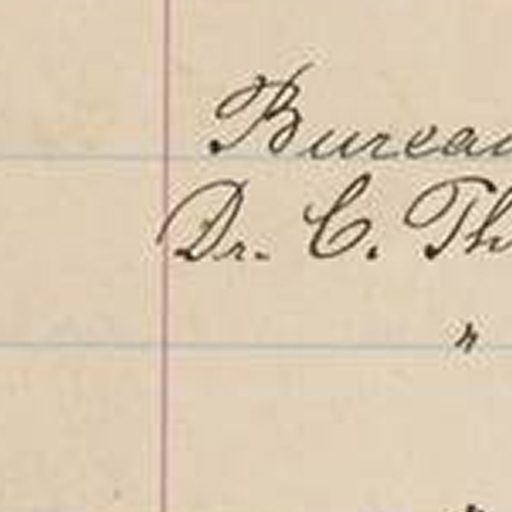 Bureau
Dr. C. Th
"
"